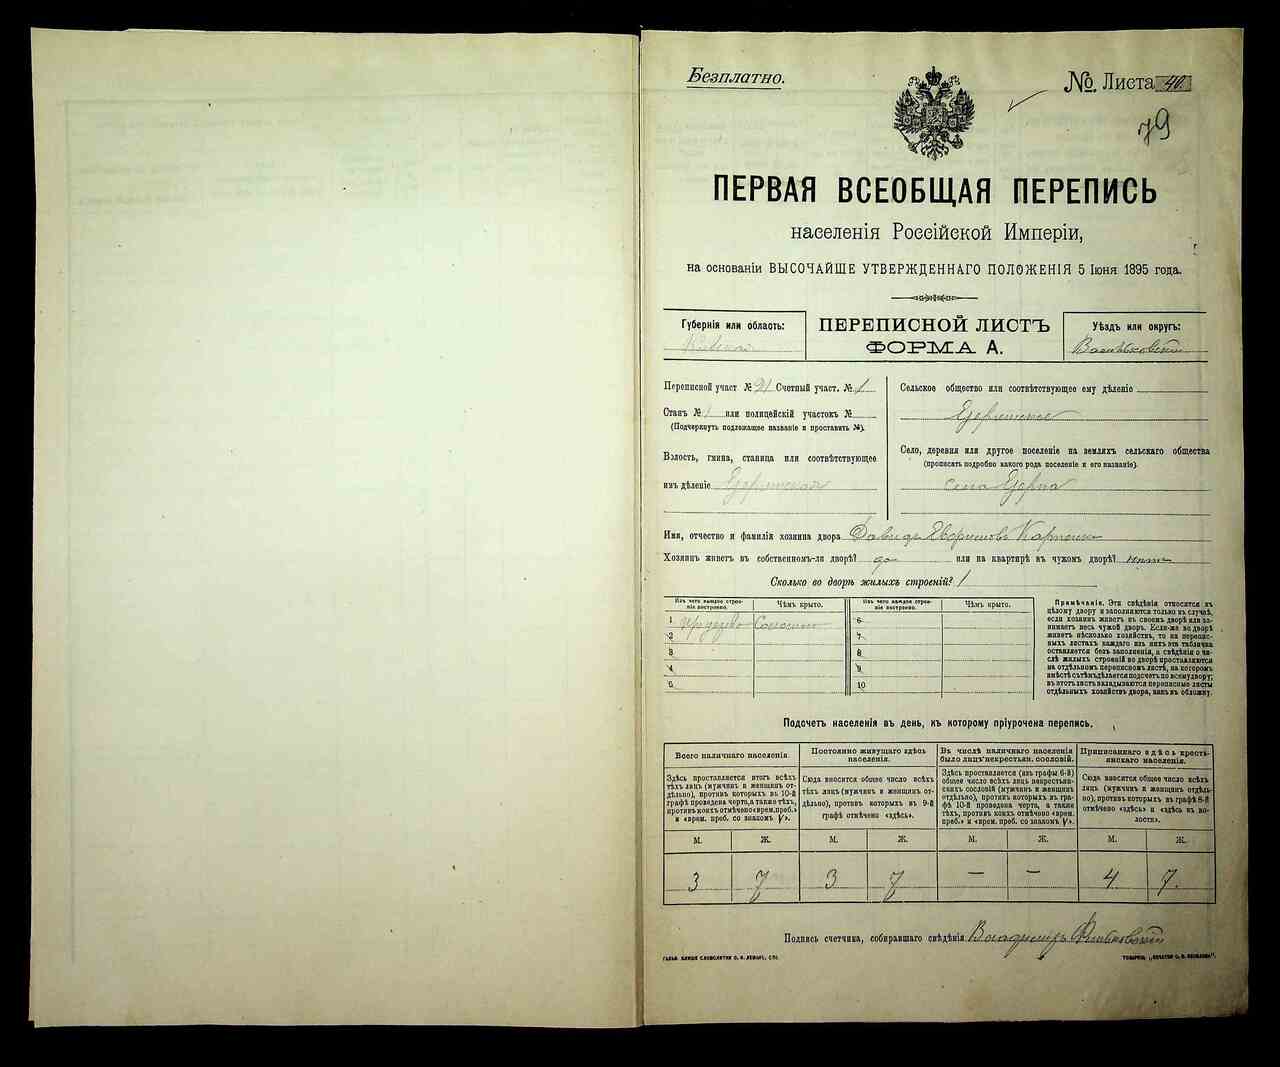 Безплатно.
№ Листа 40.
79
ПЕРВАЯ ВСЕОБЩАЯ ПЕРЕПИСЬ
населенія Россійской Имперіи,
на основаніи ВЫСОЧАЙШЕ УТВЕРЖДЕННАГО ПОЛОЖЕНІЯ 5 Іюня 1895 года.
Губернія или область:
ПЕРЕПИСНОЙ ЛИСТЪ
ФОРМА А.
Уѣздъ или округъ:
Васильковскій
Переписной участ № 21 Счетный участ. № 1
Станъ № 1 или полицейскій участокъ №
(Подчеркнуть подлежащее названіе и проставить №).
Волость, гмина, станица или соотвѣтствующее
имъ дѣленіе
Сельское общество или соотвѣтствующее ему дѣленіе
Село, деревня или другое поселеніе на земляхъ сельскаго общества
(прописать подробно какого рода поселеніе и его названіе).
Имя, отчество и фамилія хозяина двора Давидъ
Хозяинъ живетъ въ собственномъ-ли дворѣ? да или на квартирѣ въ чужомъ дворѣ?
Сколько во дворѣ жилыхъ строеній? 1
Изъ чего каждое строеніе построено.
Чѣмъ крыто.
Изъ чего каждое строеніе построено.
Чѣмъ крыто.
1 Соломою
2
3
4
5
6
7
8
9
10
Примѣчаніе. Эти свѣдѣнія относятся къ
цѣлому двору и заполняются только въ случаѣ,
если хозяинъ живетъ въ своемъ дворѣ или за-
нимаетъ весь чужой дворъ. Если-же во дворѣ
живетъ нѣсколько хозяйствъ, то на перепис-
ныхъ листахъ каждаго изъ нихъ эта табличка
оставляется безъ заполненія, а свѣдѣнія о чи-
слѣ жилыхъ строеній во дворѣ проставляются
на отдѣльномъ переписномъ листѣ, на которомъ
вмѣстѣ съ тѣмъ дѣлается подсчетъ по всему двору;
въ этотъ листъ вкладываются переписные листы
отдѣльныхъ хозяйствъ двора, какъ въ обложку.
Подсчетъ населенія въ день, къ которому пріурочена перепись.
Всего наличнаго населенія.
Здѣсь проставляется итогъ всѣхъ
тѣхъ лицъ (мужчинъ и женщинъ от-
дѣльно), противъ которыхъ въ 10-й
графѣ проведена черта, а также тѣхъ,
противъ коихъ отмѣчено «врем. преб.»
и «врем. преб. со знакомъ V».
Постоянно живущаго здѣсь
населенія.
Сюда вносится общее число всѣхъ
тѣхъ лицъ (мужчинъ и женщинъ от-
дѣльно), противъ которыхъ въ 9-й
графѣ отмѣчено «здѣсь».
Въ числѣ наличнаго населенія
было лицъ некрестьян. сословій.
Здѣсь проставляется (изъ графы 6-й)
общее число всѣхъ лицъ некрестьян-
скихъ сословій (мужчинъ и женщинъ
отдѣльно), противъ которыхъ въ гра-
фѣ 10-й проведена черта, а также
тѣхъ, противъ коихъ отмѣчено «врем.
преб.» и «врем. преб. со знакомъ V».
Приписаннаго здѣсь кресть-
янскаго населенія.
Сюда вносится общее число всѣхъ
лицъ (мужчинъ и женщинъ отдѣль-
но), противъ которыхъ въ графѣ 8-й
отмѣчено «здѣсь» и «здѣсь въ во-
лости».
М. Ж. М. Ж. М. Ж. М. Ж.
3 7 3 7 — — 4 7.
Подпись счетчика, собиравшаго свѣдѣнія Владиміръ